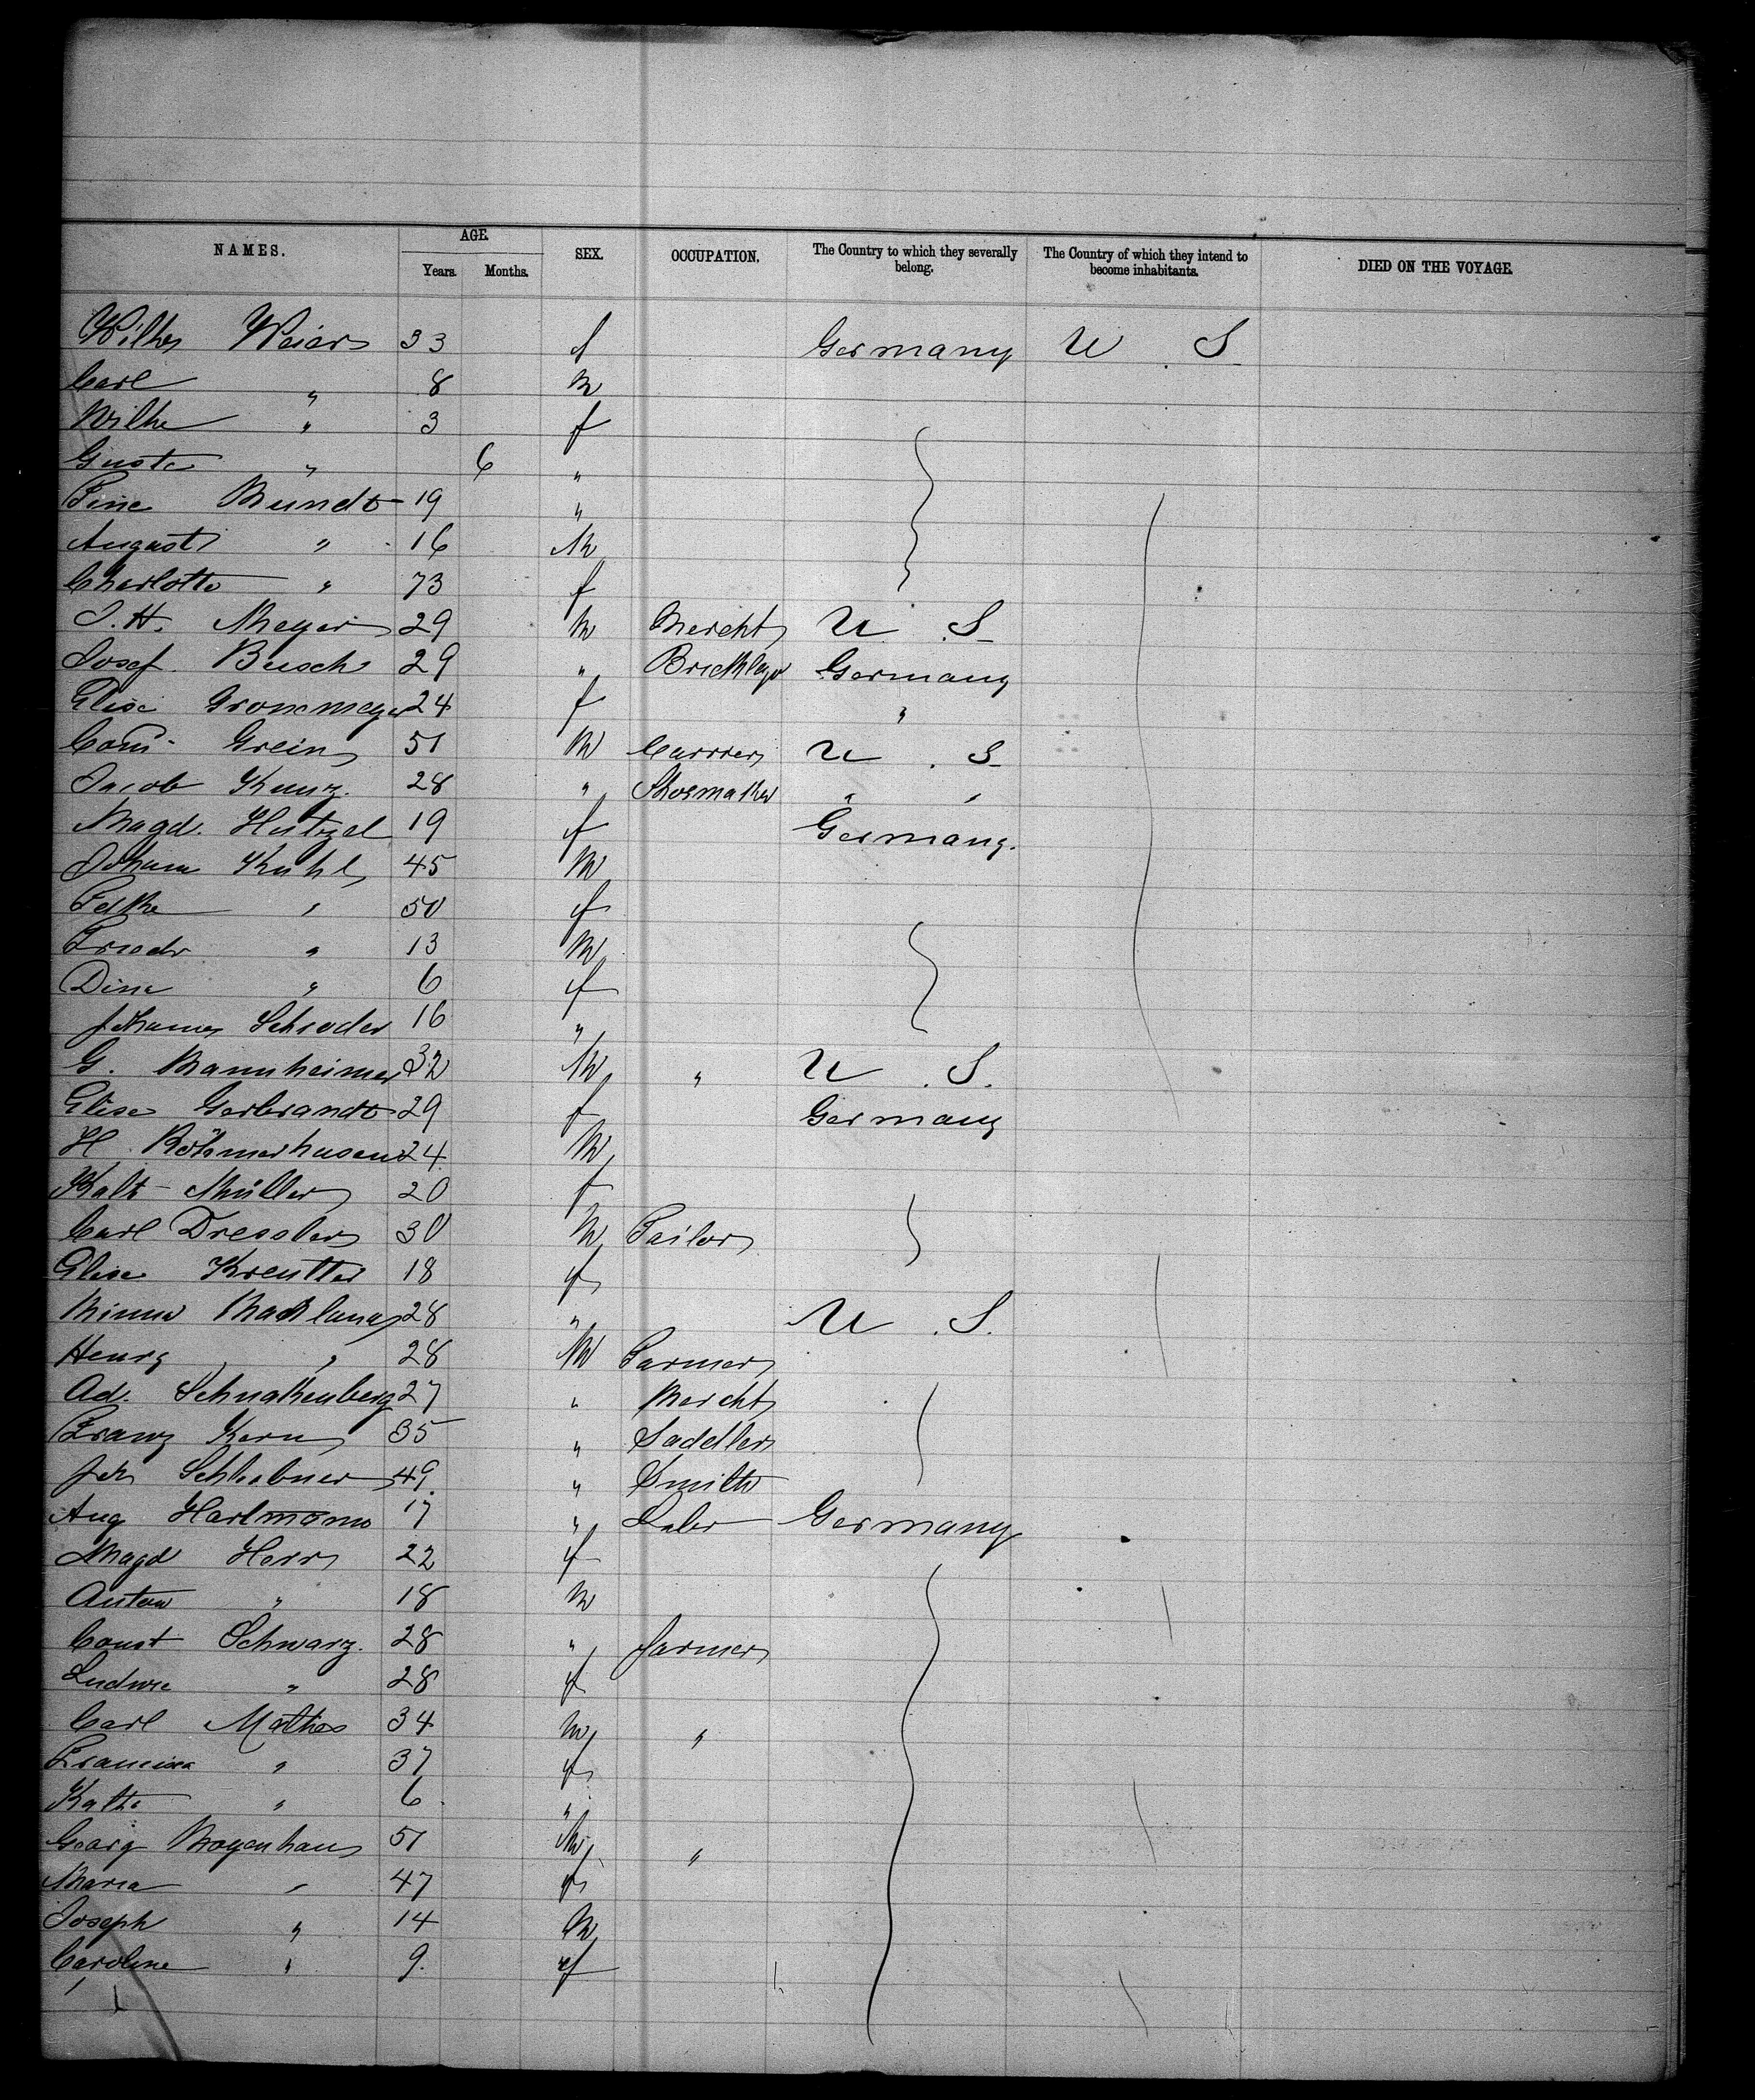 NAMES. AGE. Years. Months. SEX. OCCUPATION. The Country to which they severally belong. The Country of which they intend to become inhabitants. DIED ON THE VOYAGE.
Wilhe Weier 33 f Germany U S
Carl " 8 M
Wilhe " 3 f
Guste " 6 "
Line Mundt 19 "
August " 16 M
Charlotte " 73 f
J. H. Meyer 29 M Mercht U S
Josef Busch 29 " Bricklayr Germany
Elise Gronemeyer 24 f "
Grein 51 M Currier U S
Jacob Kunz. 28 " Shoemaker " "
Magd. Hutzel 19 f Germany.
Johann Kuhl 45 M
" 50 f
Friedr " 13 M
Dine " 6 f
Schroder 16 "
G. Mannheimer 32 M " U. S.
Elise Gerbrandt 29 f Germany
H. 24 M
Kath Müller 20 f
Carl Dressler 30 M Tailor
Elise Kreutter 18 f
Minna 28 " U. S.
Henry " 28 M Farmer
Ad. Schnakenberg 27 " Mercht
Franz Kern 35 " Saddler
Joh 49 " Smith
Aug Hartmann 17 " Labr Germany
Magd Herr 22 f
Anton " 18 M
Const Schwarz. 28 " farmer
Ludwe " 28 f
Carl Mathes 34 M "
Francisca " 37 f
Kathe " 6 "
Georg 51 M "
Maria " 47 f
Joseph " 14 M
Caroline " 9. f